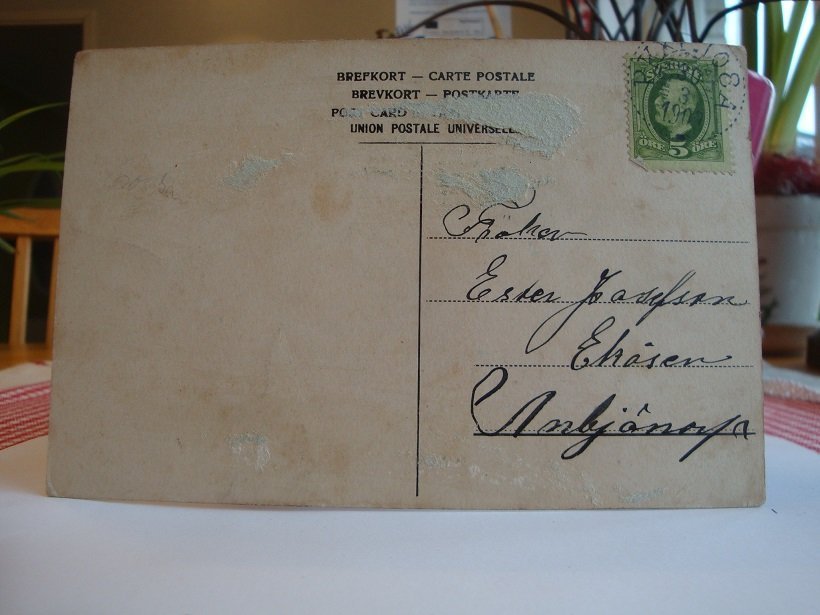 BREFKORT — CARTE POSTALE
BREVKORT — POSTKARTE
POST CARD
UNION POSTALE UNIVERSELLE
ÖRE 5 ÖRE
Fröken
Ester Josefson
Ekåsen